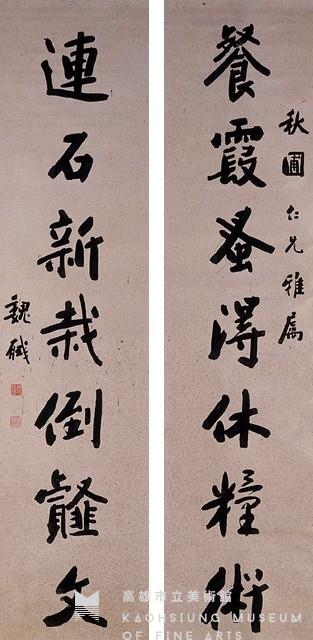 秋圃仁兄雅屬
餐霞蚤得休糧術
連石新栽倒薤文
魏戫
高雄市立美術館
KAOHSIUNG MUSEUM
OF FINE ARTS